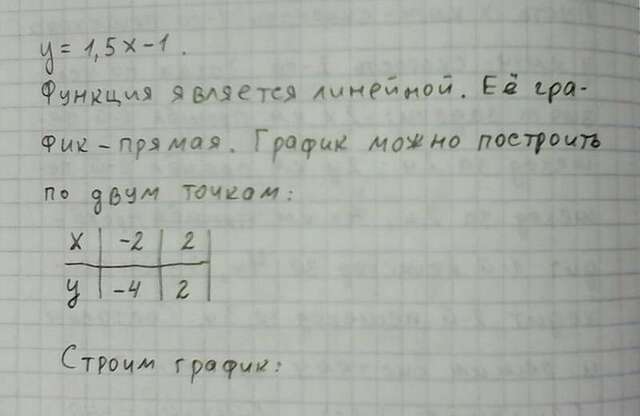 y = 1,5x-1.
Функция является линейной. Её гра-
фик - прямая. График можно построить
по двум точкам:
x | -2 | 2 |
y | -4 | 2 |
Строим график: